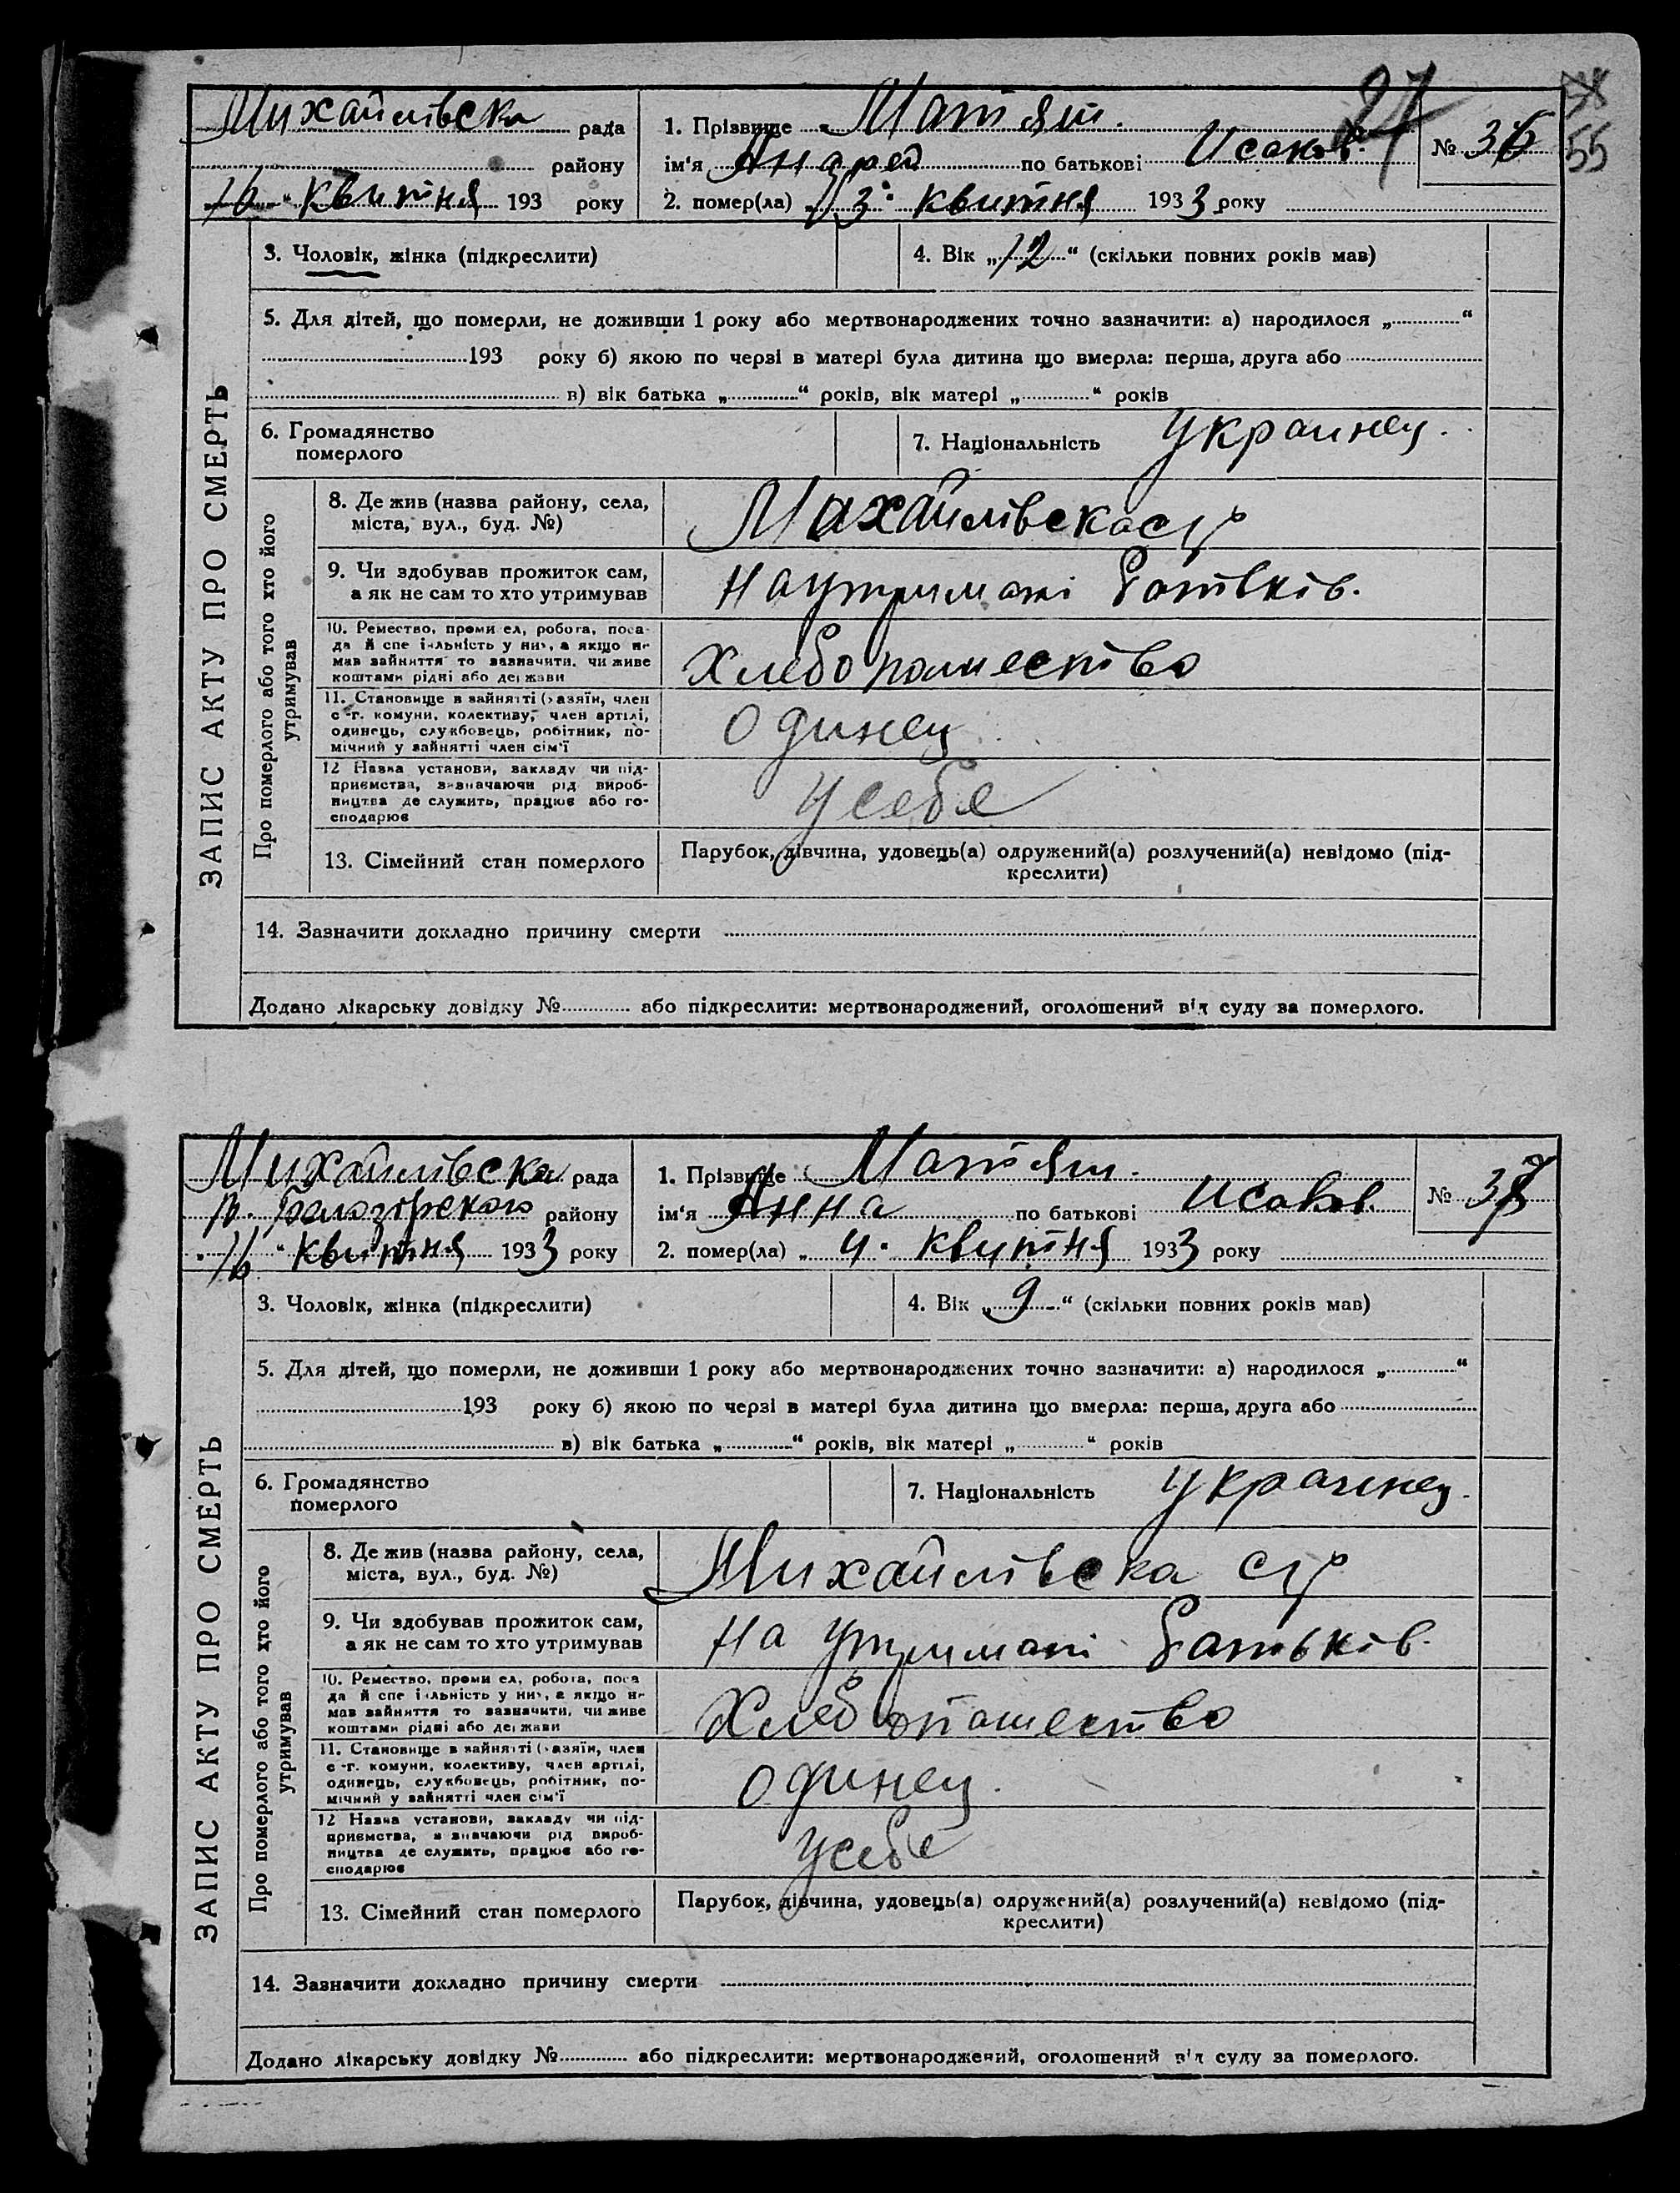 27
58
55
Михайлівска рада
району
16 " квитня 193 року
1. Прізвище Матяш.
ім'я Андрей по батькові Исаков.
№ 36
2. помер(ла) „ 13 " квитня 1933 року
ЗАПИС АКТУ ПРО СМЕРТЬ
3. Чоловік, жінка (підкреслити)
4. Вік „ 12 “ (скільки повних років мав)
5. Для дітей, що померли, не доживши 1 року або мертвонароджених точно зазначити: а) народилося „ “
193 року б) якою по черзі в матері була дитина що вмерла: перша, друга або
в) вік батька „ “ років, вік матері „ “ років
6. Громадянство
померлого
7. Національність украинец.
Про померлого або того хто його
утримував
8. Де жив (назва району, села,
міста, вул., буд. №)
Махайлівска с/р
9. Чи здобував прожиток сам,
а як не сам то хто утримував
На утримані батьків.
10. Ремество, проми ел, робота, поса-
да й спе іальність у них, а якщо не
мав зайняття то зазначити, чи живе
коштами рідні або держави
Хлебопашество
11. Становище в зайнятті (хазяїн, член
с-г. комуни, колективу, член артілі,
одинець, службовець, робітник, по-
мічний у зайнятті член сім'ї
одинец
12 Назва установи, закладу чи під-
приємства, зазначаючи рід вироб-
ництва де служить, працює або го-
сподарює
у себе
13. Сімейний стан померлого
Парубок, дівчина, удовець(а) одружений(а) розлучений(а) невідомо (під-
креслити)
14. Зазначити докладно причину смерти
Додано лікарську довідку № або підкреслити: мертвонароджений, оголошений від суду за померлого.
Михайлівска рада
В. Білозірского району
" 16 " квитня 1933 року
1. Прізвище Матяш.
ім'я Анна по батькові Исаков.
№ 37
2. помер(ла) „ 4 " квитня 1933 року
ЗАПИС АКТУ ПРО СМЕРТЬ
3. Чоловік, жінка (підкреслити)
4. Вік „ 9 “ (скільки повних років мав)
5. Для дітей, що померли, не доживши 1 року або мертвонароджених точно зазначити: а) народилося „ “
193 року б) якою по черзі в матері була дитина що вмерла: перша, друга або
в) вік батька „ “ років, вік матері „ “ років
6. Громадянство
померлого
7. Національність украинец.
Про померлого або того хто його
утримував
8. Де жив (назва району, села,
міста, вул., буд. №)
Михайлівска с/р
9. Чи здобував прожиток сам,
а як не сам то хто утримував
На утримані батьків.
10. Ремество, проми ел, робота, поса
да й спе іальність у них, а якщо не
мав зайняття то зазначити, чи живе
коштами рідні або держави
Хлебопашество
11. Становище в зайнятті (хазяїн, член
с-г. комуни, колективу, член артілі,
одинець, службовець, робітник, по-
мічний у зайнятті член сім'ї
одинец.
12 Назва установи, закладу чи під-
приємства, зазначаючи рід вироб-
ництва де служить, працює або го-
сподарює
у себе
13. Сімейний стан померлого
Парубок, дівчина, удовець(а) одружений(а) розлучений(а) невідомо (під-
креслити)
14. Зазначити докладно причину смерти
Додано лікарську довідку № або підкреслити: мертвонароджений, оголошений від суду за померлого.